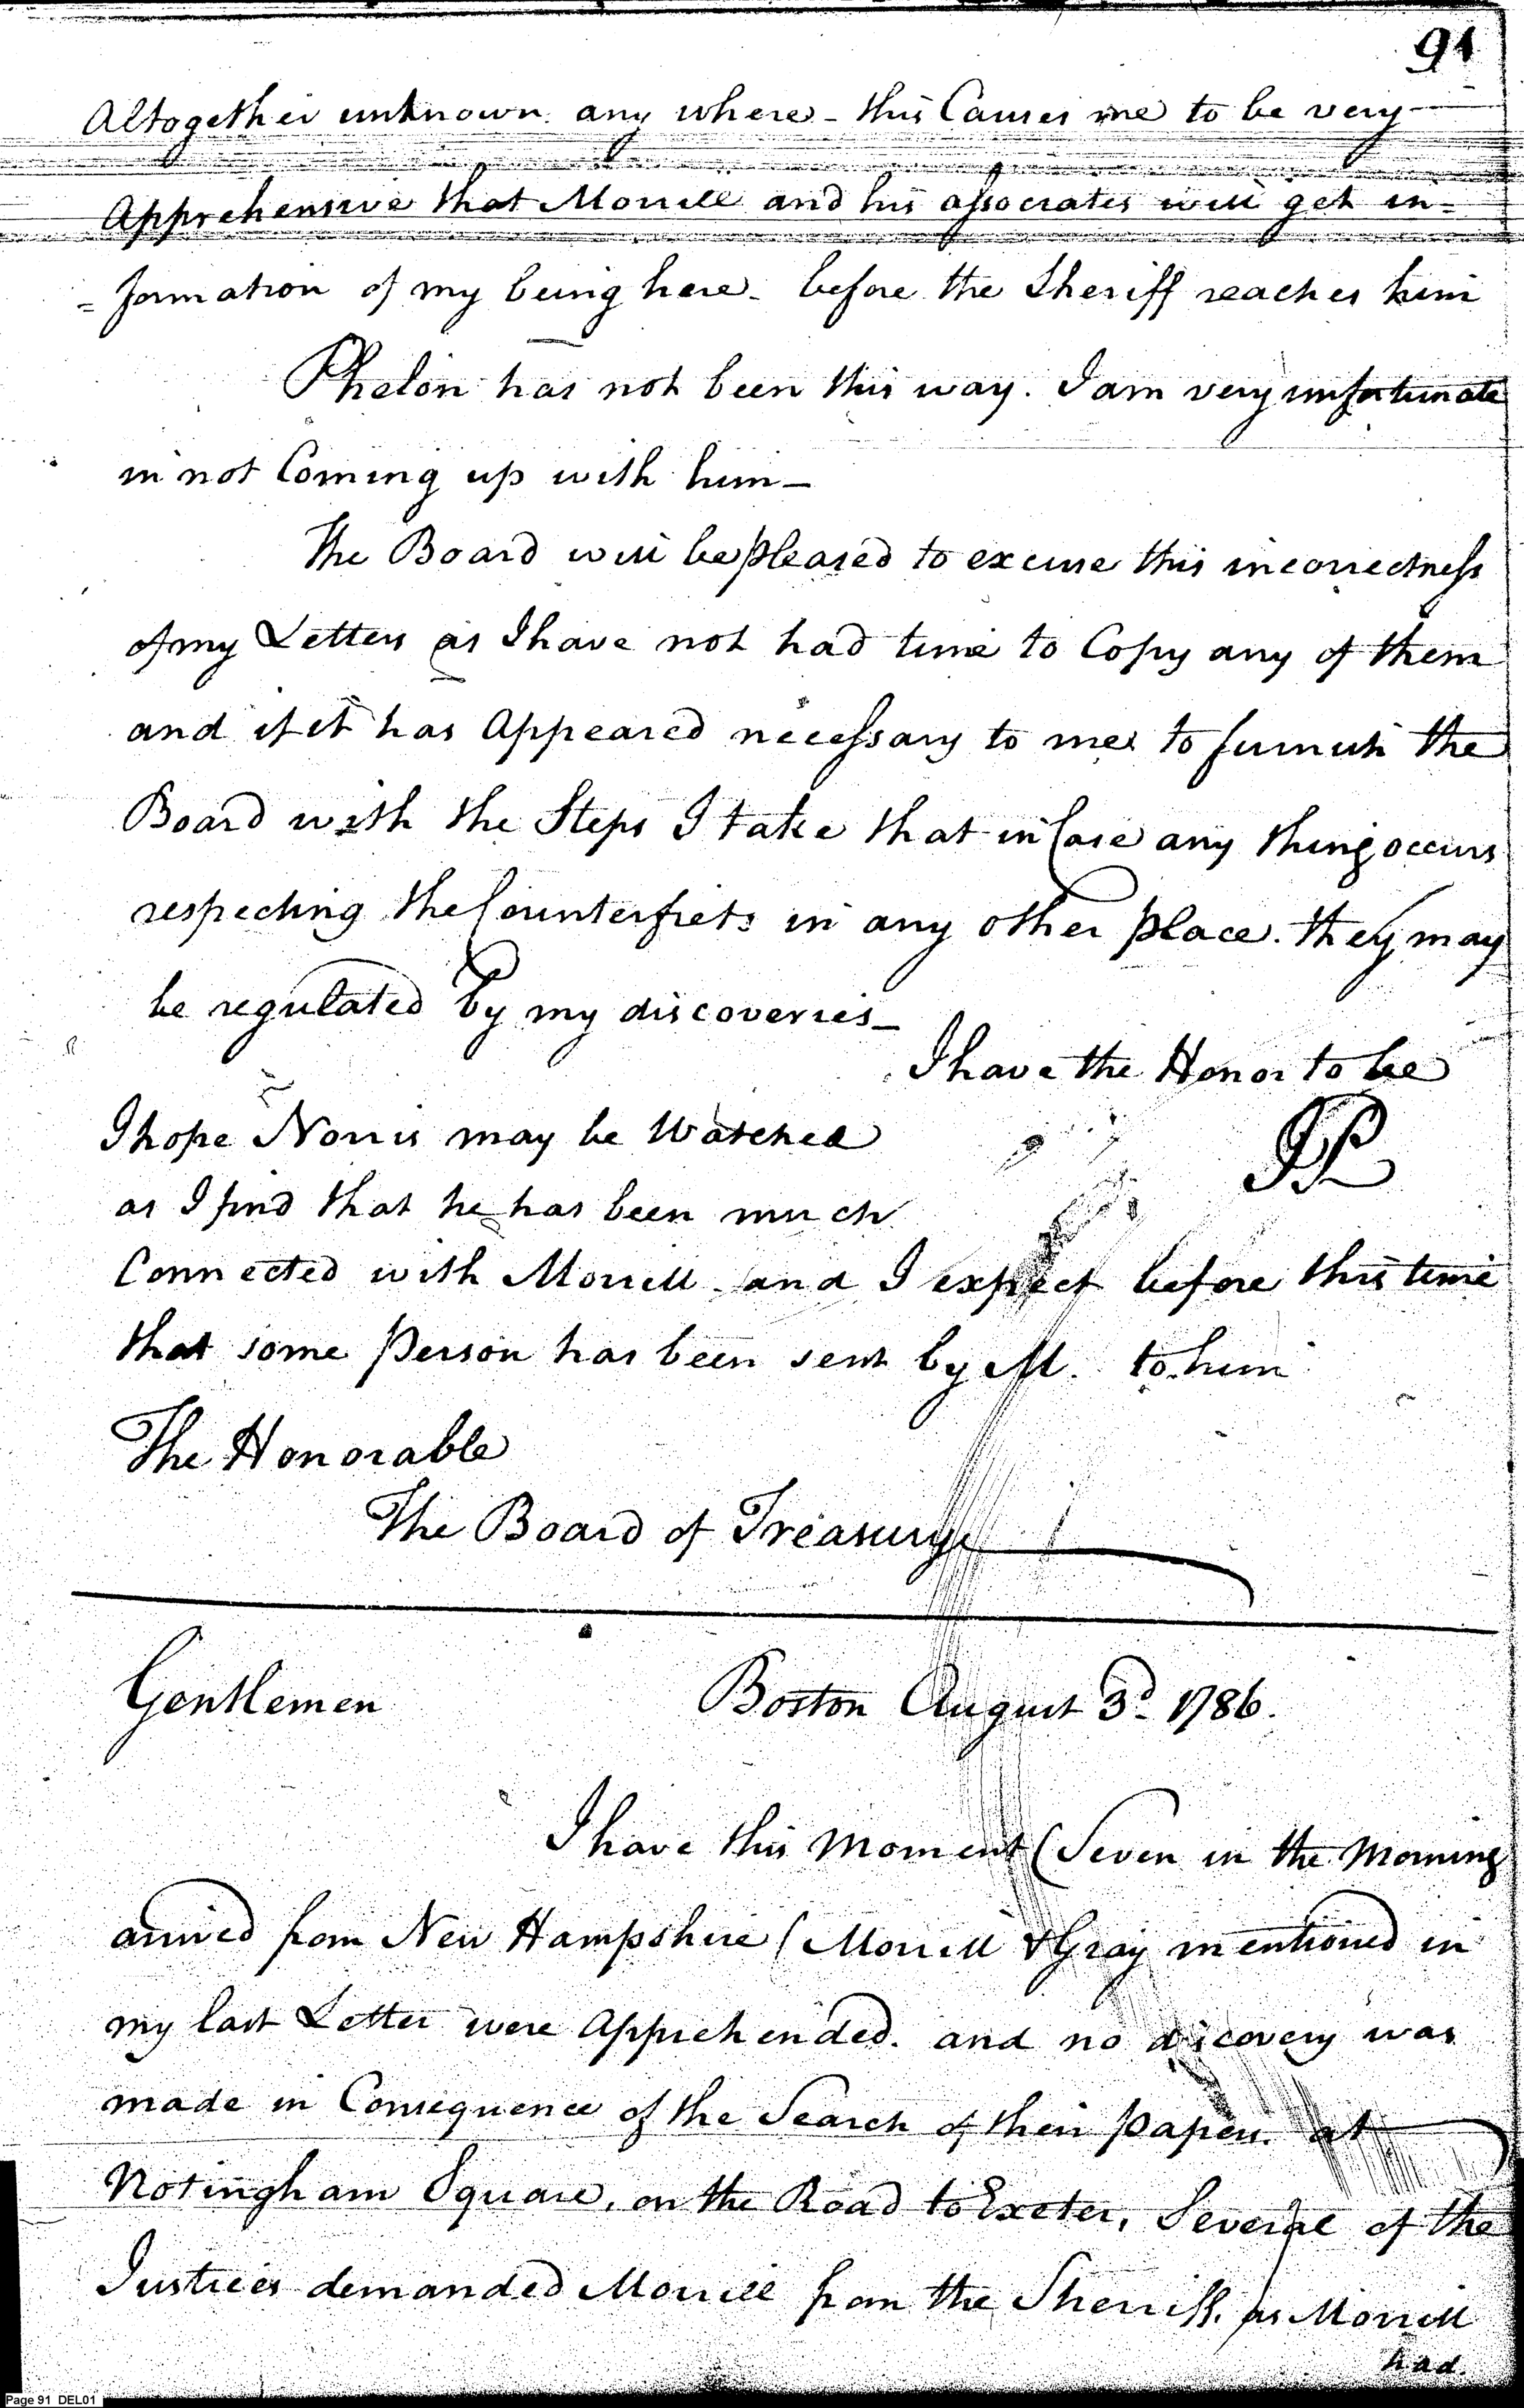 91
Altogether unknown any where - this Causes me to be very
Apprehensive that Morrill and his associates will get in=
=formation of my being here - before the Sheriff reaches him
Phelon has not been this way. I am very unfortunate
in not Coming up with him -
The Board will be pleased to excuse this incorrectness
of my Letters as I have not had time to Copy any of them
and if it has Appeared necessary to me to furnish the
Board with the Steps I take that in Case any thing occurs
respecting the Counterfiets in any other place. they may
be regulated by my discoveries -
I have the Honor to be
I hope Norris may be Watched
as I find that he has been much
Connected with Morrill and I expect before this time
that some Person has been sent by M. to him
The Honorable
The Board of Treasury
Gentlemen Boston August 3d 1786.
I have this Moment (Seven in the Morning
arrived from New Hampshire (Morrill & Gray mentioned in
my last Letter were Apprehended. and no discovery was
made in Consequence of the Search of their papers. at
Notingham Square, on the Road to Exeter, Several of the
Justices demanded Morrill from the Sherriff. as Morrill
had.
Page 91 DEL01